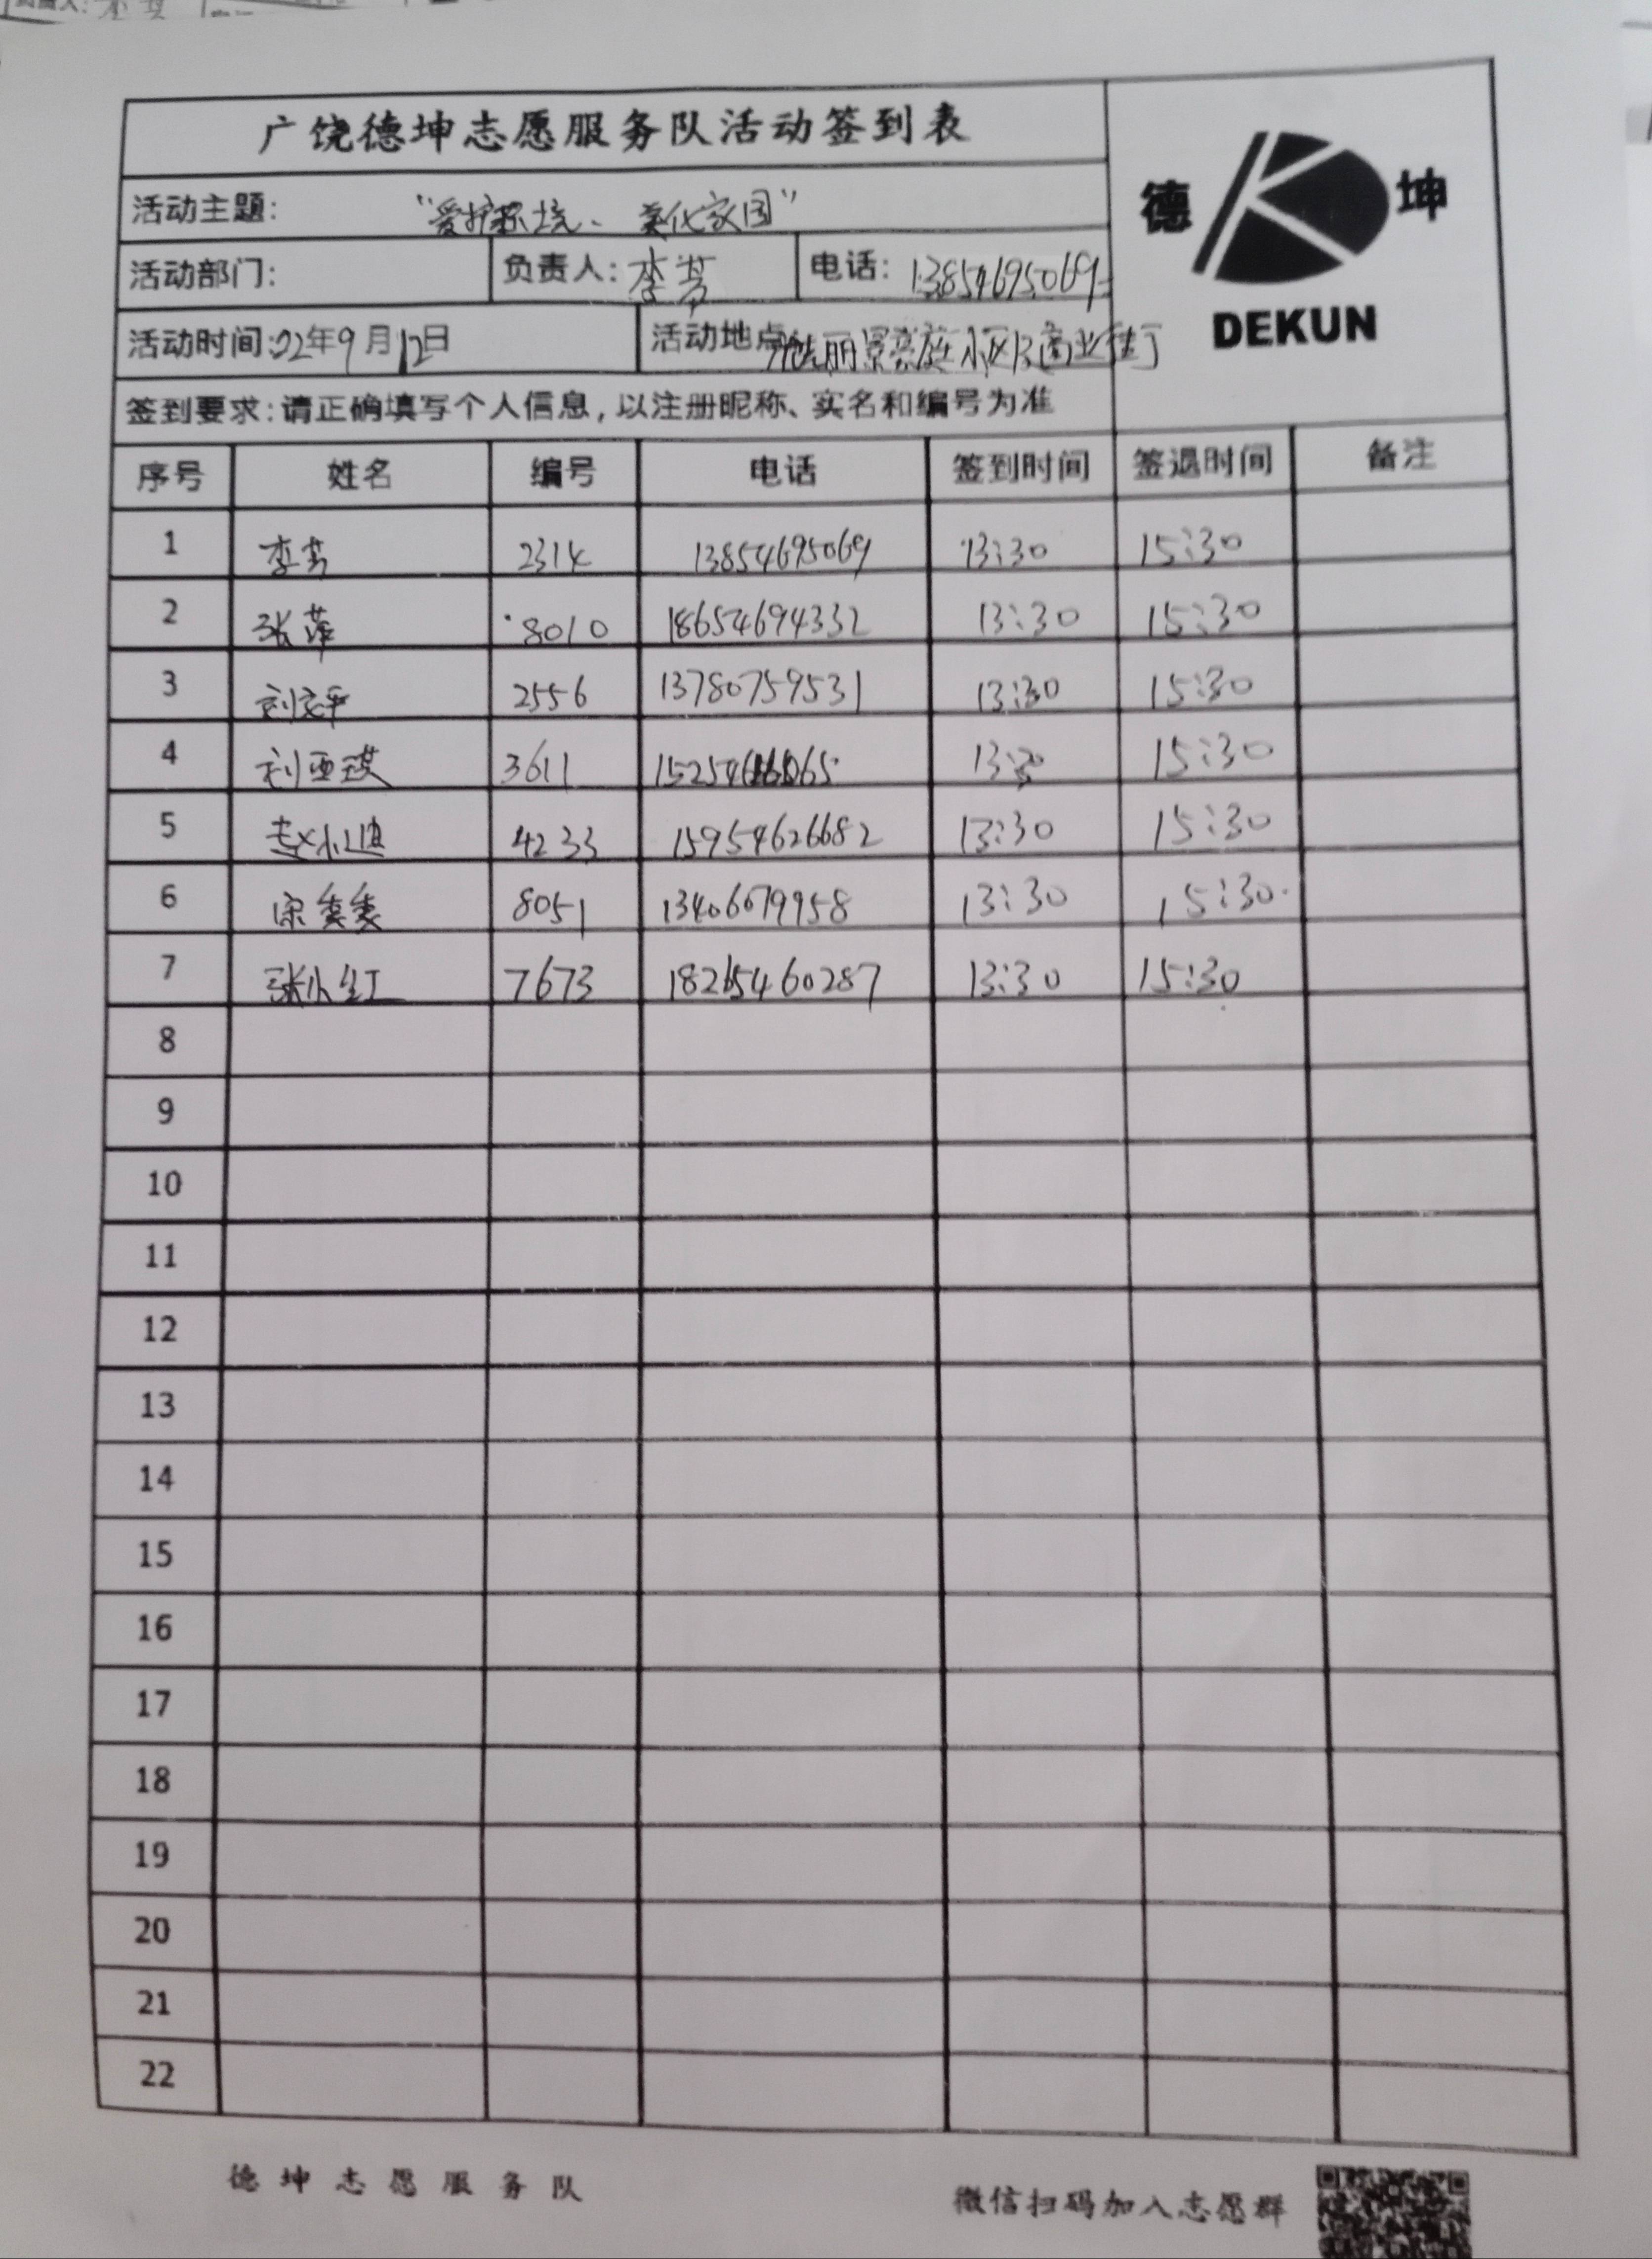 广饶德坤志愿服务队活动签到表
德 坤
DEKUN
活动主题: “爱护环境、美化家园”
活动部门: 负责人: 李芳 电话: 13854695069
活动时间: 02年9月12日 活动地点 丽景豪庭小区 商业街
签到要求:请正确填写个人信息,以注册昵称、实名和编号为准
序号 姓名 编号 电话 签到时间 签退时间 备注
1 李芳 2314 13854695069 13:30 15:30
2 张萍 8010 18654694332 13:30 15:30
3 刘文平 2556 13780759531 13:30 15:30
4 刘亚琪 3611 13:30 15:30
5 赵小迪 4233 15954626682 13:30 15:30
6 宋委委 8051 13406679958 13:30 15:30
7 张小红 7673 18265460287 13:30 15:30
8
9
10
11
12
13
14
15
16
17
18
19
20
21
22
德坤志愿服务队 微信扫码加入志愿群